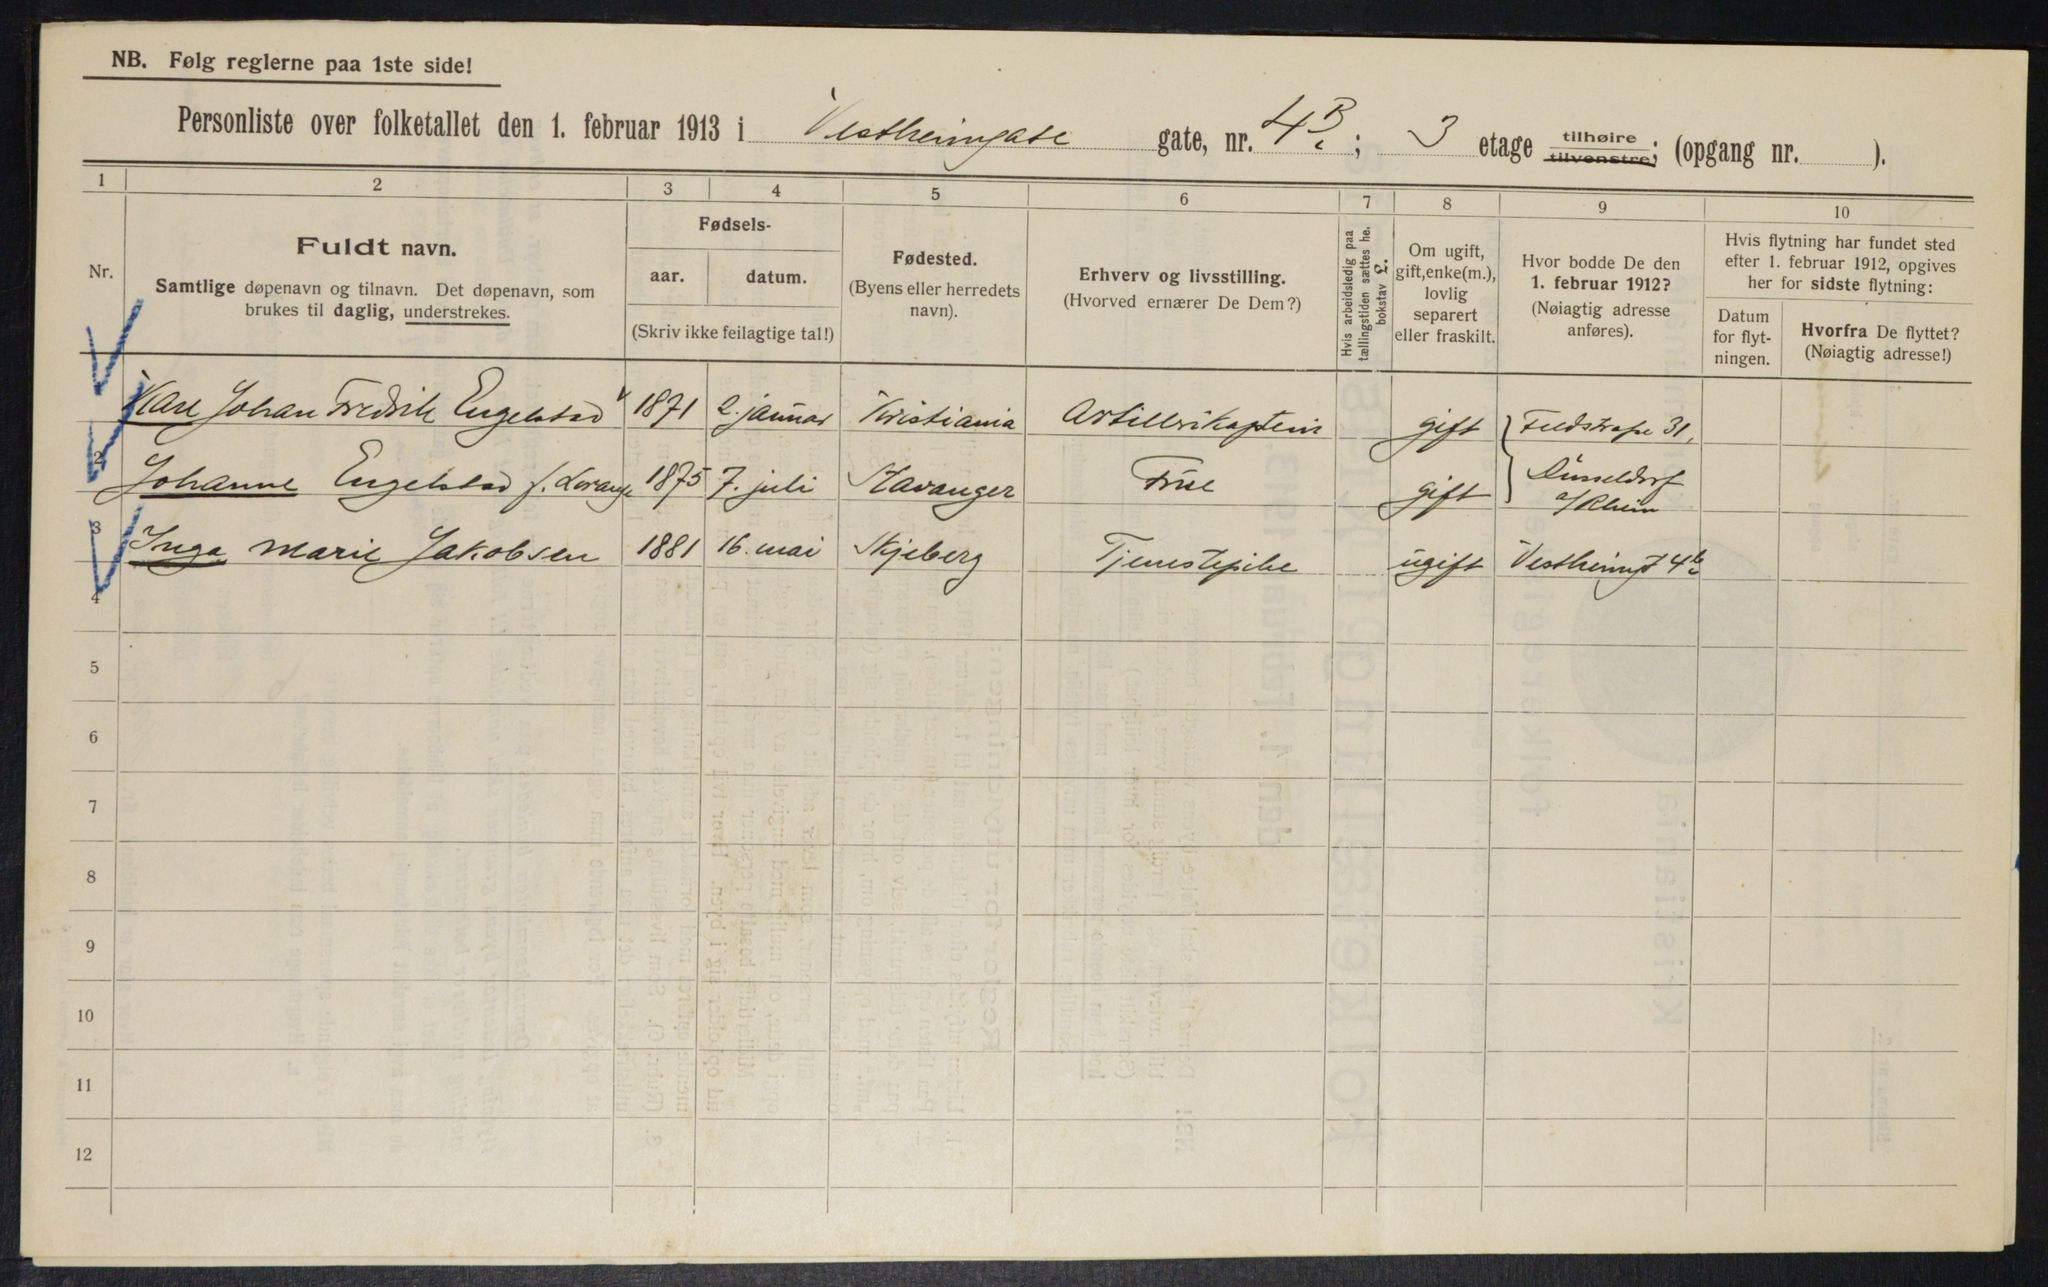 NB. Følg reglerne paa 1ste side!
Personliste over folketallet den 1. februar 1913 i Vestheimgate gate, nr. 4B; 3 etage tilhøire tilvenstre; (opgang nr. ).
1 2 3 4 5 6 7 8 9 10
Nr.
Fuldt navn.
Samtlige døpenavn og tilnavn. Det døpenavn, som
brukes til daglig, understrekes.
Fødsels-
aar. datum.
(Skriv ikke feilagtige tal!)
Fødested.
(Byens eller herredets
navn).
Erhverv og livsstilling.
(Hvorved ernærer De Dem?)
Hvis arbeidsledig paa
tællingstiden sættes he.
bokstav £.
Om ugift,
gift, enke(m.),
lovlig
separert
eller fraskilt.
Hvor bodde De den
1. februar 1912?
(Nøiagtig adresse
anføres).
Hvis flytning har fundet sted
efter 1. februar 1912, opgives
her for sidste flytning:
Datum
for flyt-
ningen.
Hvorfra De flyttet?
(Nøiagtig adresse!)
Karl Johan Fredrik Engelstad 1871 2. januar Kristiania Artillerikaptein gift
2 Johanne Engelstad f. Lorange 1875 7. juli Stavanger Frue gift
31, Düsseldorf a/Rhein
3 Inga Marie Jakobsen 1881 16. mai Skjeberg Tjenestepike ugift Vestheimgt 4b
4
5
6
7
8
9
10
11
12